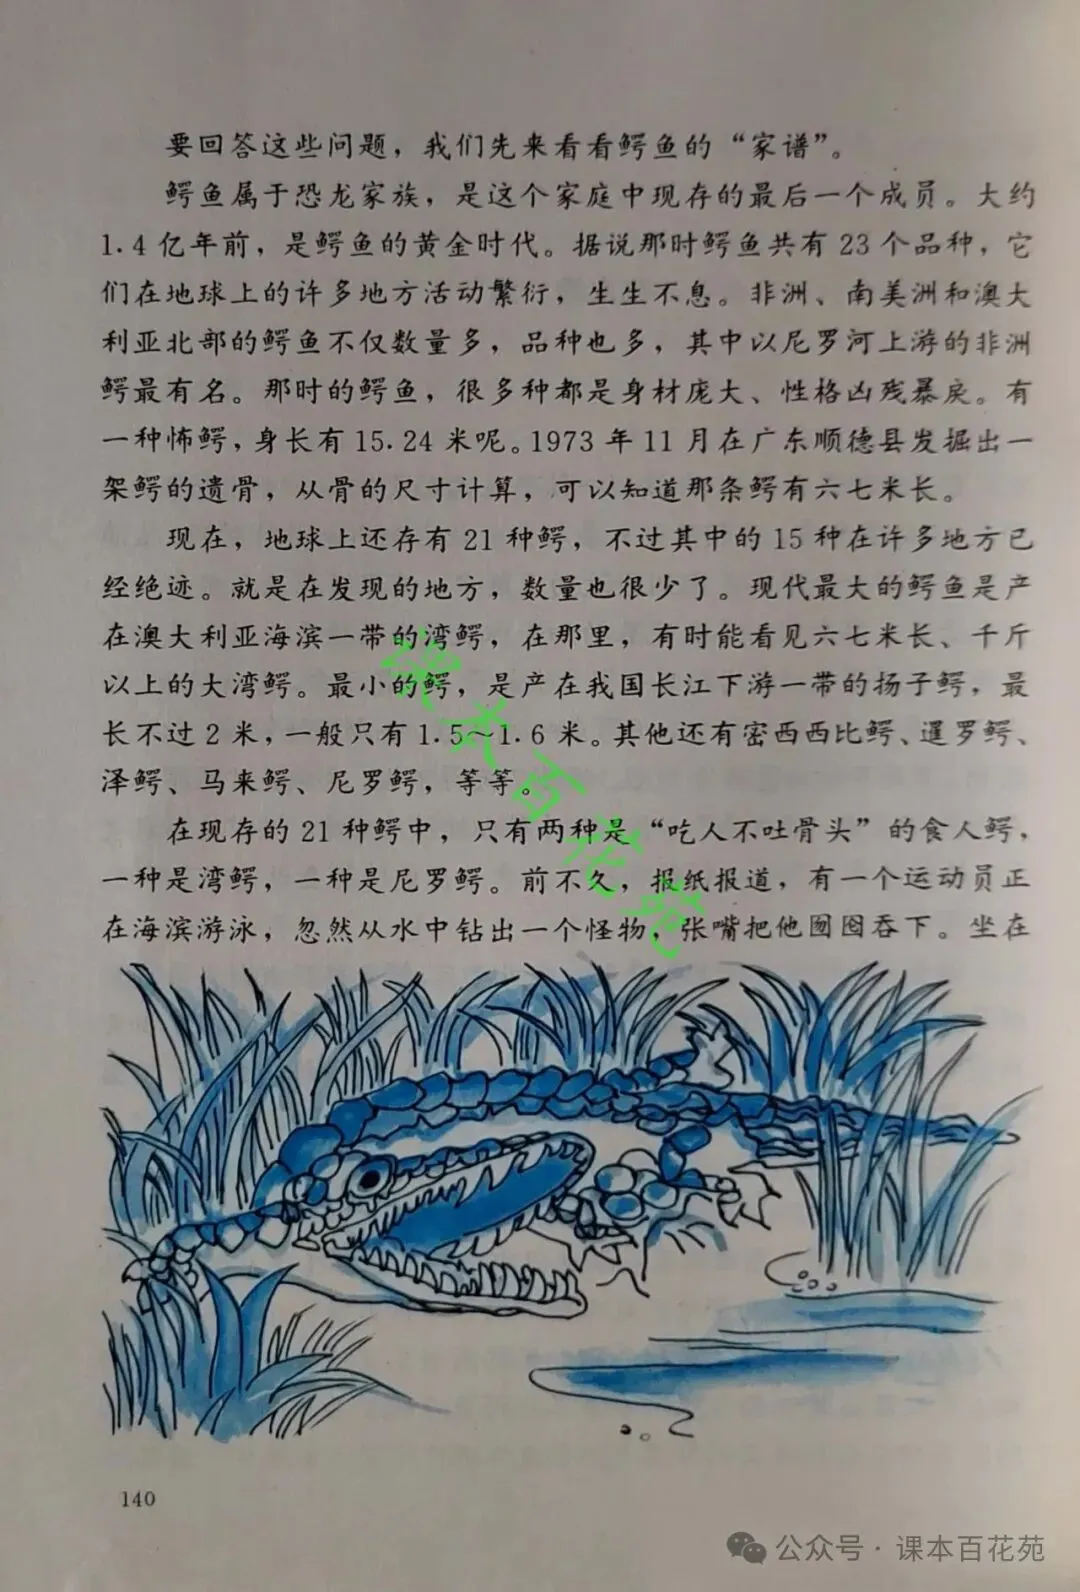 要回答这些问题，我们先来看看鳄鱼的“家谱”。
鳄鱼属于恐龙家族，是这个家庭中现存的最后一个成员。大约
1.4亿年前，是鳄鱼的黄金时代。据说那时鳄鱼共有23个品种，它
们在地球上的许多地方活动繁衍，生生不息。非洲、南美洲和澳大
利亚北部的鳄鱼不仅数量多，品种也多，其中以尼罗河上游的非洲
鳄最有名。那时的鳄鱼，很多种都是身材庞大、性格凶残暴戾。有
一种怖鳄，身长有15.24米呢。1973年11月在广东顺德县发掘出一
架鳄的遗骨，从骨的尺寸计算，可以知道那条鳄有六七米长。
现在，地球上还存有21种鳄，不过其中的15种在许多地方已
经绝迹。就是在发现的地方，数量也很少了。现代最大的鳄鱼是产
在澳大利亚海滨一带的湾鳄，在那里，有时能看见六七米长、千斤
以上的大湾鳄。最小的鳄，是产在我国长江下游一带的扬子鳄，最
长不过2米，一般只有1.5～1.6米。其他还有密西西比鳄、暹罗鳄、
泽鳄、马来鳄、尼罗鳄，等等。
在现存的21种鳄中，只有两种是“吃人不吐骨头”的食人鳄，
一种是湾鳄，一种是尼罗鳄。前不久，报纸报道，有一个运动员正
在海滨游泳，忽然从水中钻出一个怪物，张嘴把他囫囵吞下。坐在
课本百花苑
140
公众号·课本百花苑